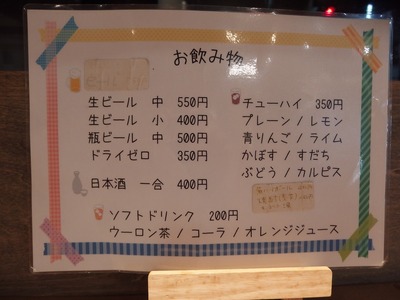 お飲み物
生ビール 中 550円
生ビール 小 400円
瓶ビール 中 500円
ドライゼロ 350円
日本酒 一合 400円
チューハイ 350円
プレーン / レモン
青りんご / ライム
かぼす / すだち
ぶどう / カルピス
ソフトドリンク 200円
ウーロン茶 / コーラ / オレンジジュース